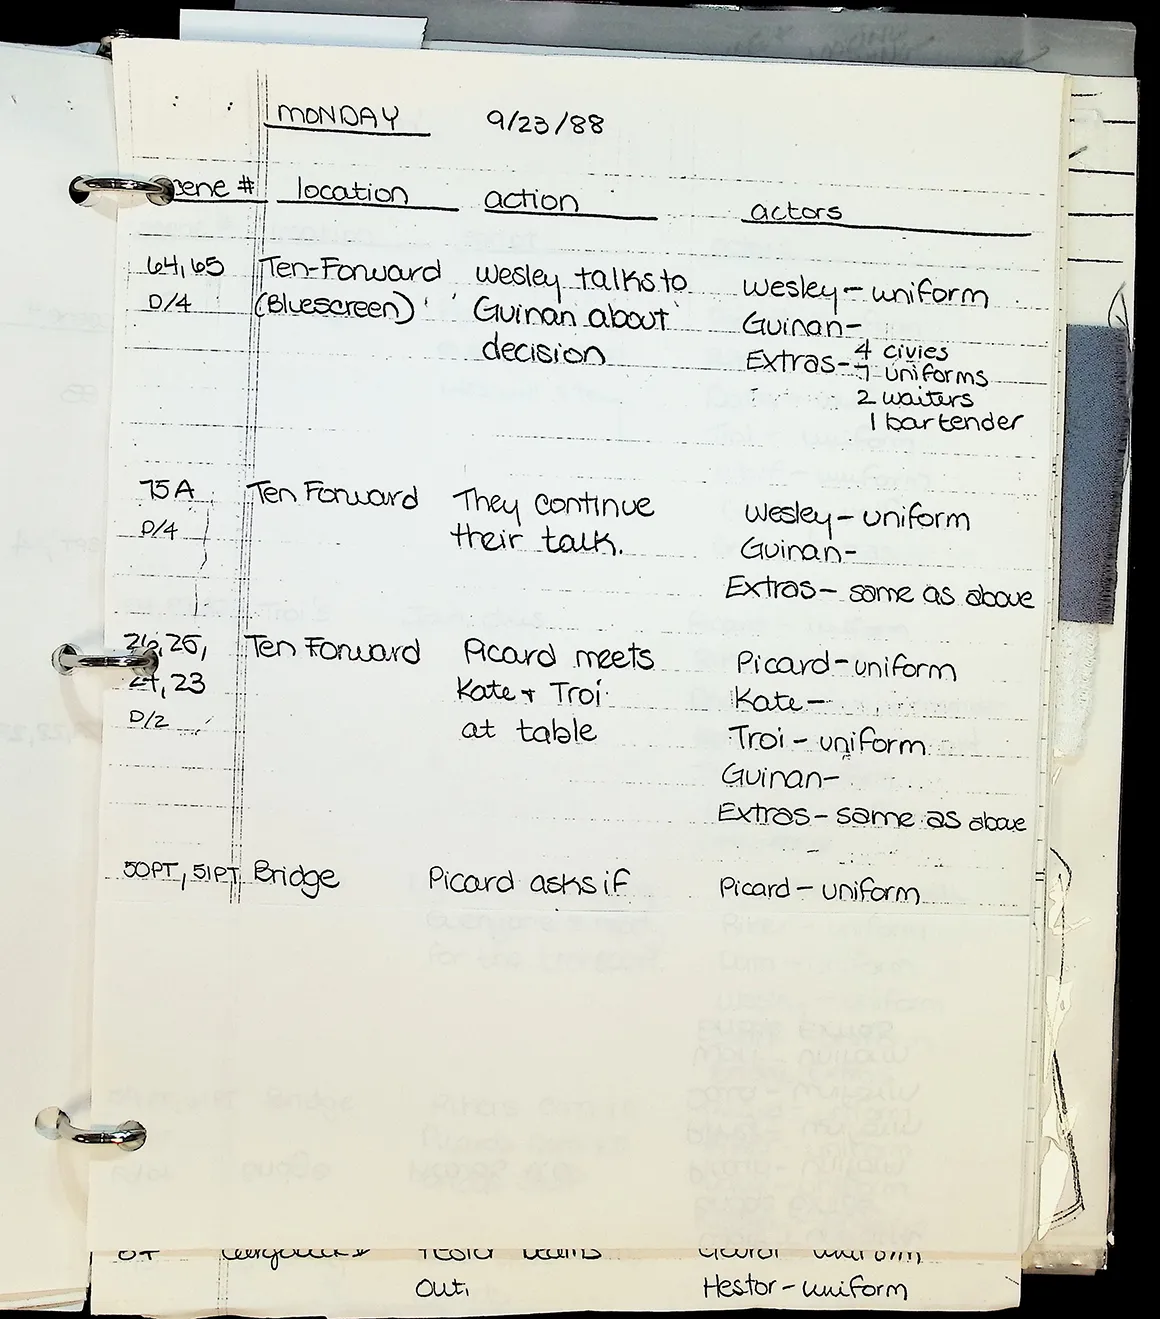 MONDAY 9/23/88
scene # location action actors
64,65 Ten-Forward Wesley talks to Wesley - uniform
D/4 (Bluescreen) Guinan about Guinan-
decision Extras- 4 civies
7 uniforms
2 waiters
1 bartender
75A Ten Forward They continue Wesley - uniform
D/4 their talk. Guinan-
Extras- same as above
26,25, Ten Forward Picard meets Picard-uniform
24,23 Kate + Troi Kate-
D/2 at table Troi - uniform
Guinan-
Extras- same as above
50PT, 51PT Bridge Picard asks if Picard- uniform
out. Hestor-uniform